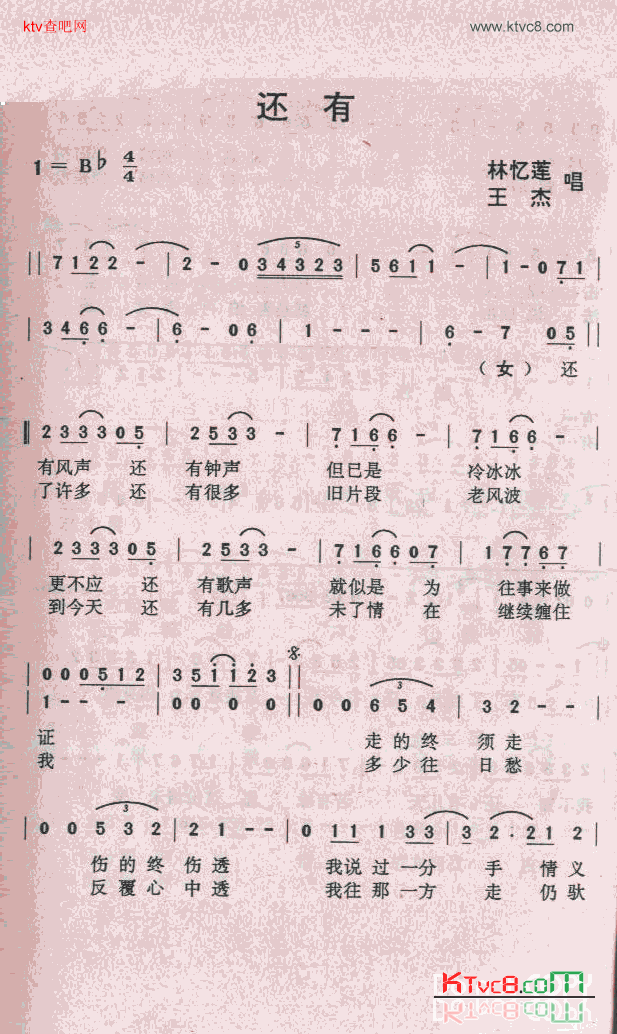 ktv查吧网 www.ktvc8.com
还 有
1 = B♭ 4/4
林忆莲
王 杰 唱
|| 7 1 2 2 - | 2 - 0 3 4 3 2 3 | 5 6 1 1 - | 1 - 0 7 1 |
| 3 4 6 6 - | 6 - 0 6 | 1 - - - | 6 - 7 0 5 ||
（女）还
|| 2 3 3 3 0 5 | 2 5 3 3 - | 7 1 6 6 - | 7 1 6 6 - |
有风声 还 有钟声 但已是 冷冰冰
了许多 还 有很多 旧片段 老风波
| 2 3 3 3 0 5 | 2 5 3 3 - | 7 1 6 6 0 7 | 1 7 7 6 7 |
更不应 还 有歌声 就似是 为 往事来做
到今天 还 有几多 未了情 在 继续缠住
| 0 0 0 5 1 2 | 3 5 1 1 2 3 ||
| 1 - - - | 0 0 0 0 || 0 0 6 5 4 | 3 2 - - |
证 走的终 须走
我 多少往 日愁
| 0 0 5 3 2 | 2 1 - - | 0 1 1 1 3 3 | 3 2 · 2 1 2 |
伤的终 伤透 我说过一分 手 情义
反覆心 中透 我往那一方 走 仍驮
KTvc8.com